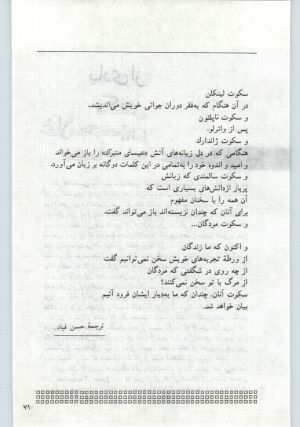 سکوت لینکلن
در آن هنگام که به‌فقر دوران جوانی خویش می‌اندیشد،
و سکوت ناپلئون
پس از واترلو،
و سکوت ژاندارك
هنگامی که در دل زبانه‌های آتش «عیسای متبرك» را باز می‌خواند
و امید و اندوه خود را به‌تمامی در این کلمات دوگانه بر زبان می‌آورد،
و سکوت سالمندی که زبانش
پربار ازدانش‌های بسیاری است که
آن همه را با سخنان مفهوم
برای آنان که چندان نزیسته‌اند باز می‌تواند گفت،
و سکوت مردگان...
و اکنون که ما زندگان
از ورطهٔ تجربه‌های خویش سخن نمی‌توانیم گفت
از چه روی در شگفتی که مردگان
از مرگ با تو سخن نمی‌کنند؟
سکوت آنان، چندان که ما به‌دیار ایشان فرود آئیم
بیان خواهد شد.
ترجمهٔ حسن فیاد
۷۱